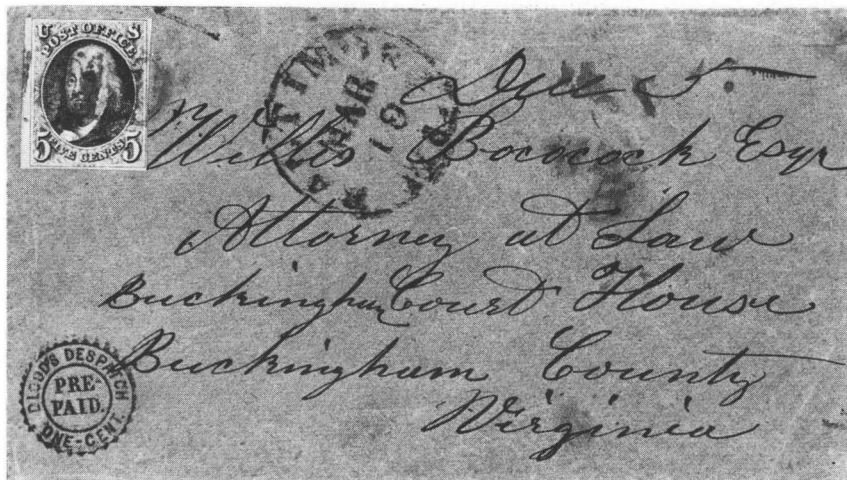 U S
POST OFFICE
5 FIVE CENTS 5
BALTIMORE Md.
MAR
19
Due 5
Willis Bococock Esqr
Attorney at Law
Buckingham Court House
Buckingham County
Virginia
BLOOD'S DESPATCH
PRE-
PAID.
ONE-CENT.